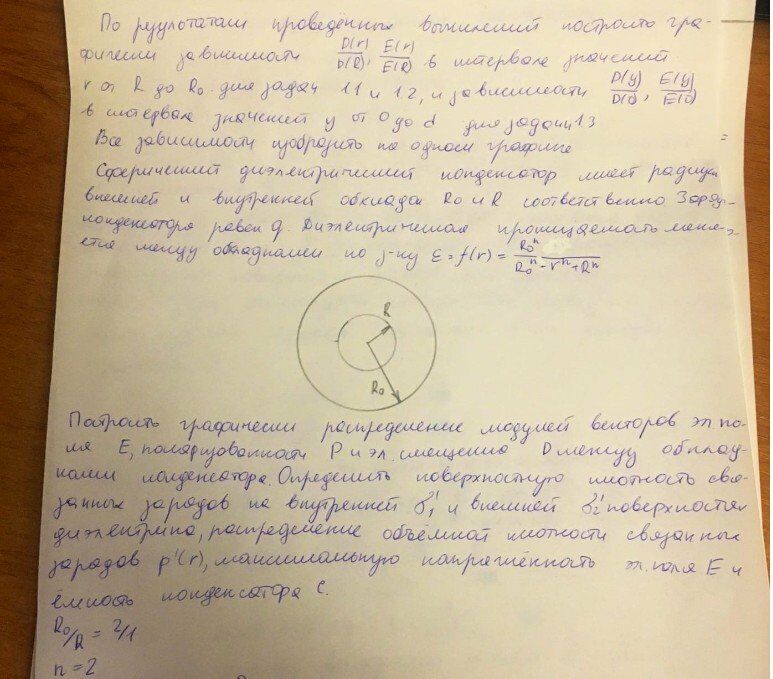 По результатам проведённых вычислений построить гра-
фически зависимости D(r)/D(R), E(r)/E(R) в интервале значений
r от R до R₀ для задач 1.1 и 1.2, и зависимости D(y)/D(0), E(y)/E(0)
в интервале значений y от 0 до d для задачи 1.3
Все зависимости изобразить на одном графике
Сферический диэлектрический конденсатор имеет радиусы
внешней и внутренней обкладок R₀ и R соответственно Заряд
конденсатора равен q. Диэлектрическая проницаемость меня-
ется между обкладками по з-ну ε = f(r) = R₀ⁿ/(R₀ⁿ - rⁿ + Rⁿ)
R
R₀
Построить графически распределение модулей векторов эл по-
ля E, поляризованности P и эл. смещения D между обклад-
ками конденсатора. Определить поверхностную плотность свя-
занных зарядов на внутренней σ₁' и внешней σ₂' поверхностях
диэлектрика, распределение объёмной плотности связанных
зарядов ρ'(r), максимальную напряжённость эл. поля E и
ёмкость конденсатора C.
R₀/R = 2/1
n = 2